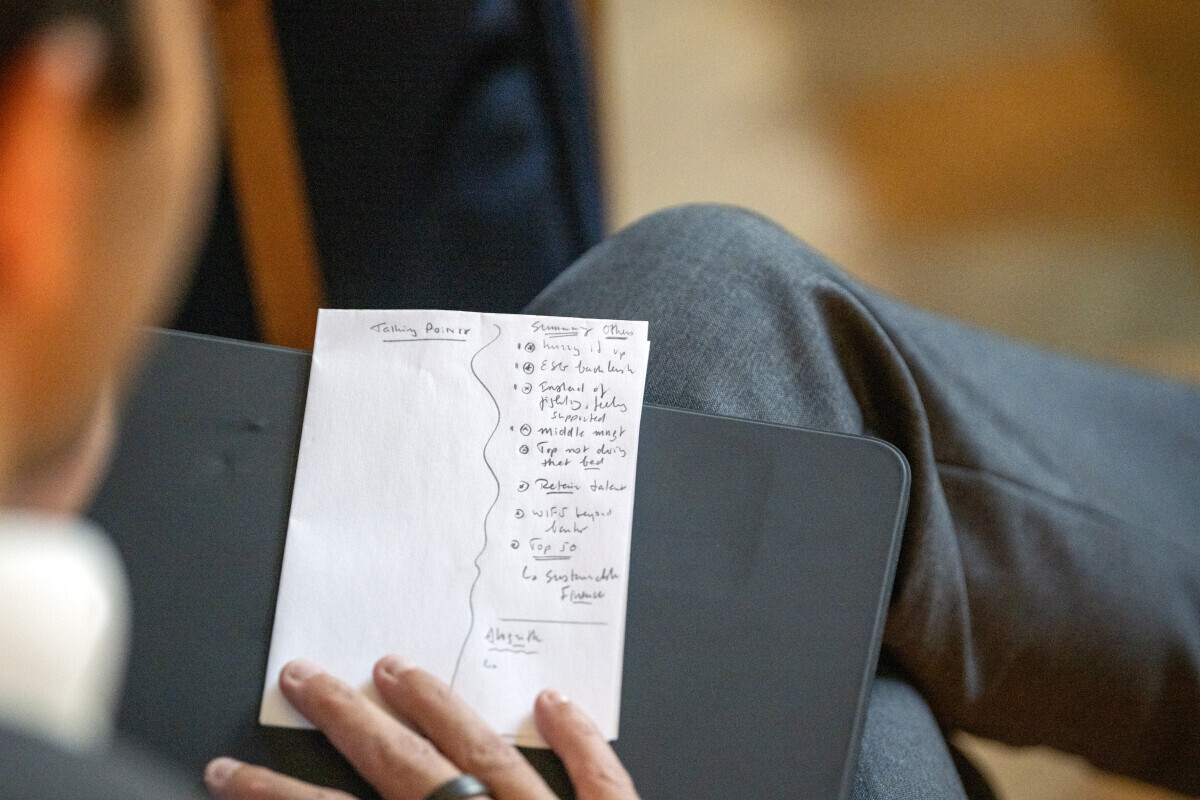 Talking Points
Summary Others
hurry it up
ESG backlash
Instead of
fighting, feeling
supported
middle mngt
Top not doing
that bad
Retain talent
beyond
Top 50
↳ Sustainable
Finance
↳